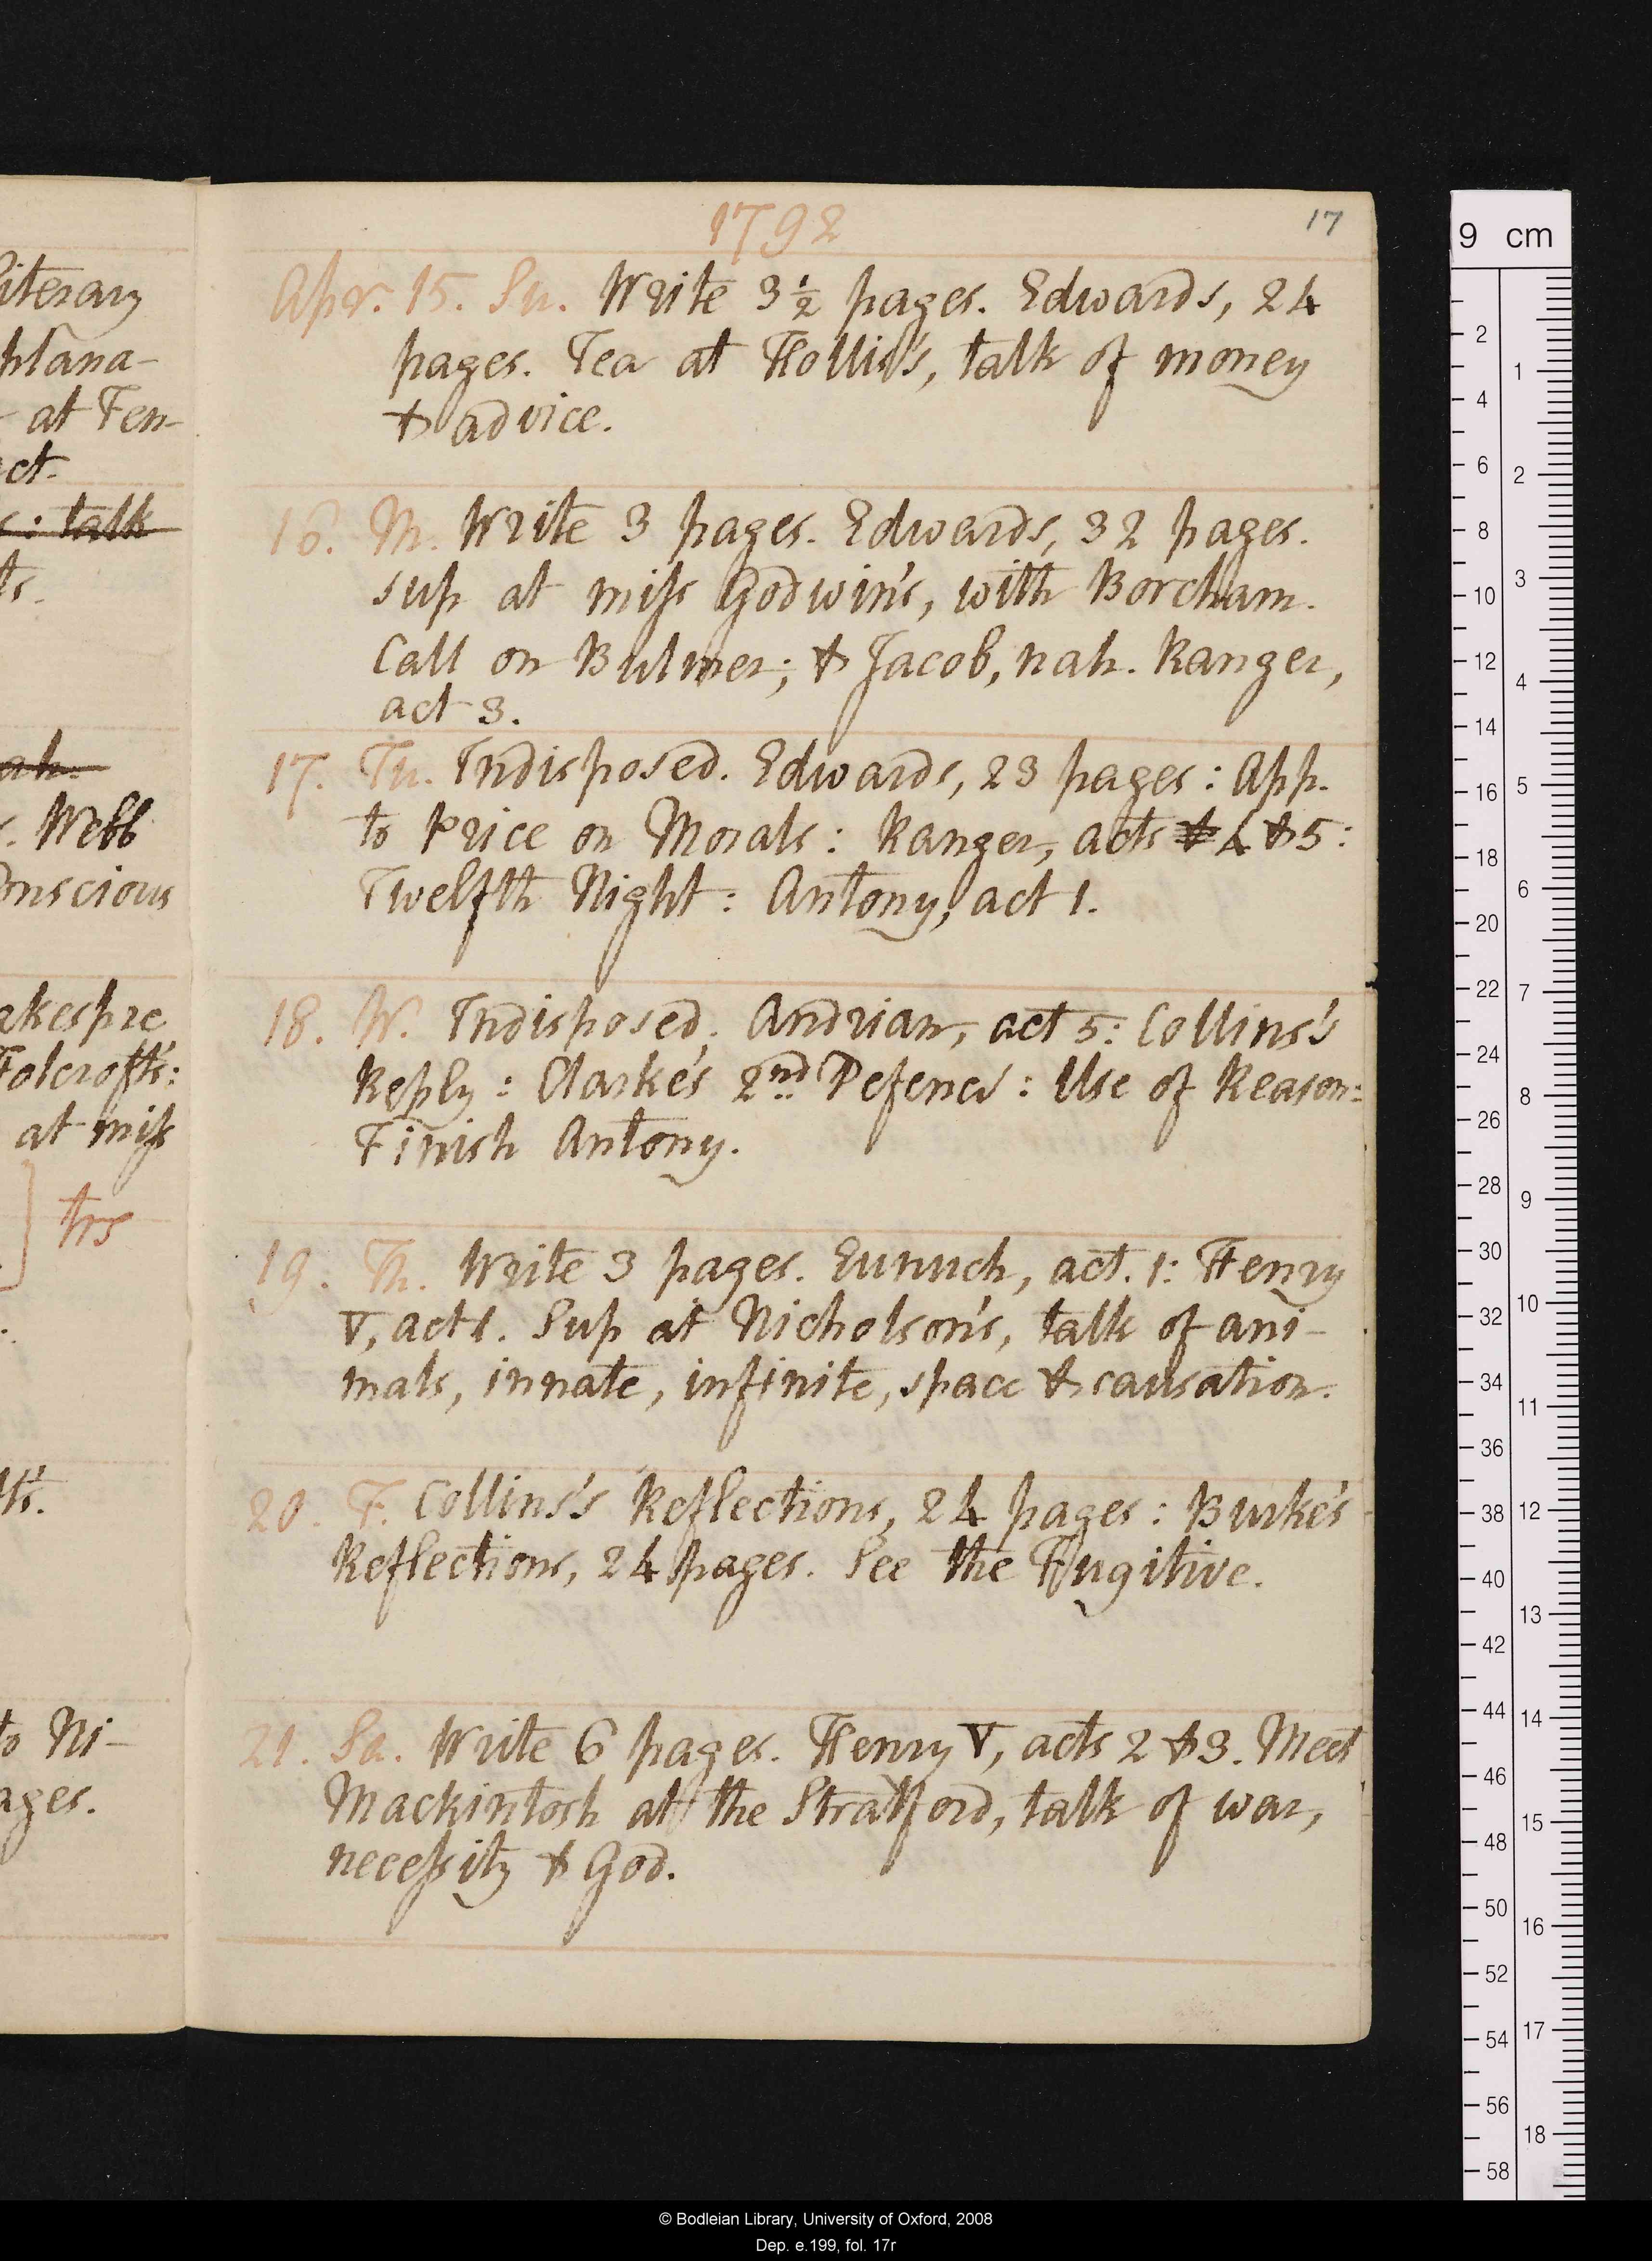 1792
17
Apr. 15. Su. Write 3½ pages. Edwards, 24
pages. Tea at Hollis's, talk of money
& advice.
16. M. Write 3 pages. Edwards, 32 pages.
sup at miſs Godwin's, with Boreham.
Call on Bulmer; & Jacob, nah. Ranger,
act 3.
17. Tu. Indisposed. Edwards, 23 pages: App.
to Price on Morals: Ranger, acts & 4 & 5:
Twelfth Night: Antony, act 1.
18. W. Indisposed. Andrian, act 5: Collins's
Reply: Clarke's 2nd Defence: Use of Reason:
Finish Antony.
19. Th. Write 3 pages. Eunuch, act. 1: Henry
V, act 1. Sup at Nicholson's, talk of ani-
mals, innate, infinite, space & causation.
20. F. Collins's Reflections, 24 pages: Burke's
Reflections, 24 pages. See the Fugitive.
21. Sa. Write 6 pages. Henry V, acts 2 & 3. Meet
Mackintosh at the Stratford, talk of war,
neceſsity & God.
literary
plana-
at Fen-
ct.
: talk
ts.
nah.
Webb
Conscious
akespre
Holcroft's:
at miſs
trs
to Ni-
ages.
9 cm
2
4
6
8
10
12
14
16
18
20
22
24
26
28
30
32
34
36
38
40
42
44
46
48
50
52
54
56
58
1
2
3
4
5
6
7
8
9
10
11
12
13
14
15
16
17
18
© Bodleian Library, University of Oxford, 2008
Dep. e.199, fol. 17r